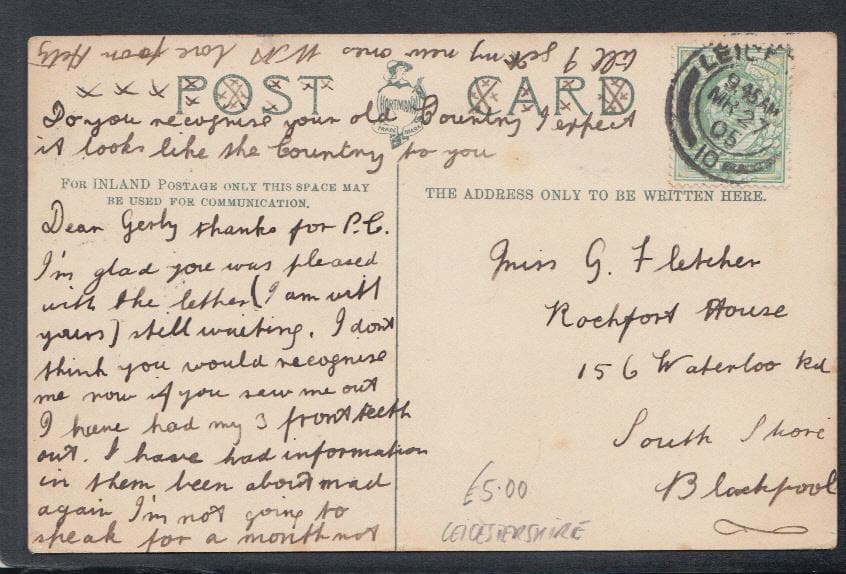 till I get my new ones W.N love from Hetty
POST CARD
HARTMANN
TRADE MARK
Do you recognise your old Country I expect
it looks like the Country to you
LEIC
9.45 AM
MR 27
05
10
FOR INLAND POSTAGE ONLY THIS SPACE MAY
BE USED FOR COMMUNICATION.
THE ADDRESS ONLY TO BE WRITTEN HERE.
Dear Gerty thanks for P.C.
I'm glad you was pleased
with the letter (I am with
yours) still waiting. I don't
think you would recognise
me now if you saw me out
I have had my 3 front teeth
out. I have had information
in them been about mad
again I'm not going to
speak for a month not
Miss G. Fletcher
Rochfort House
156 Waterloo Rd
South Shore
Blackpool
£5.00
LEICESTERSHIRE